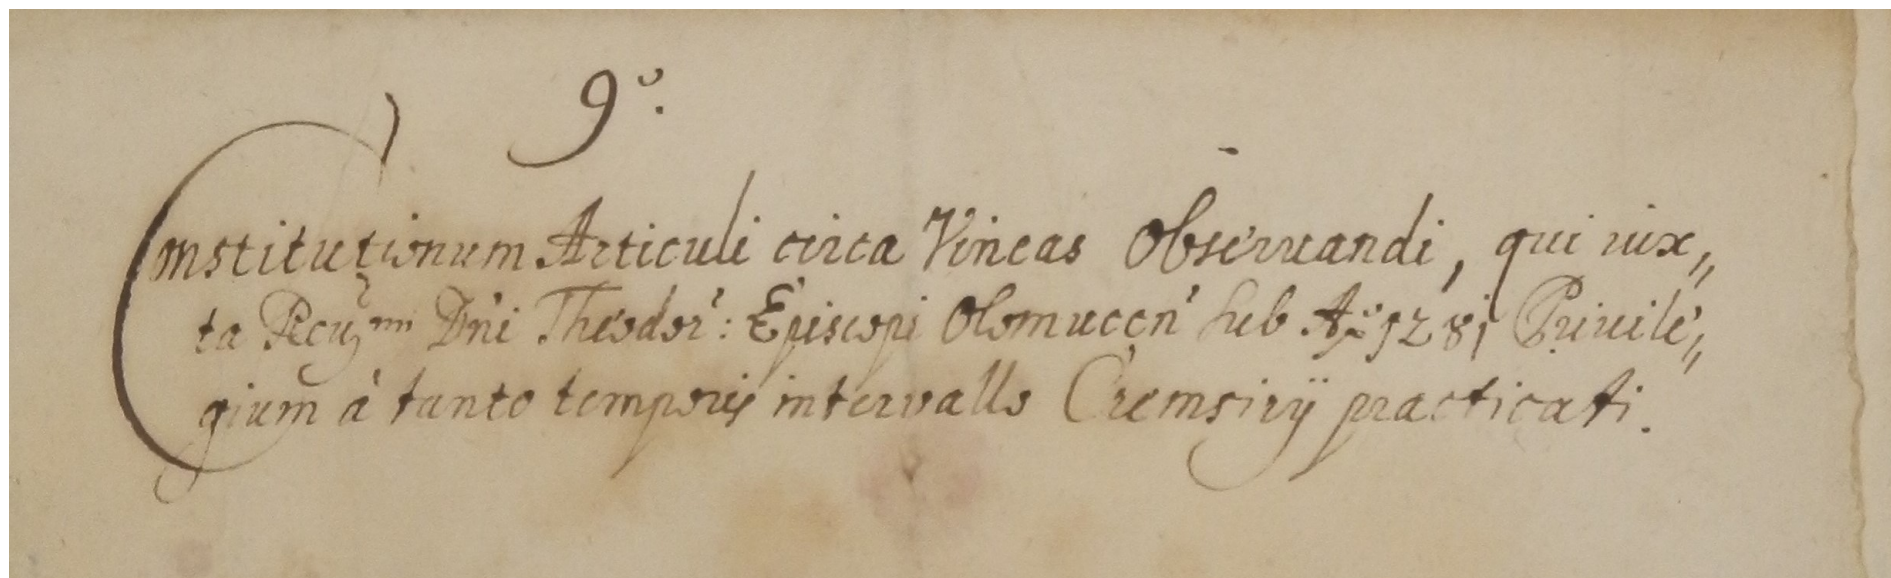 9º.
Constitutionum Articuli circa Vineas Observandi, qui iux„
ta Reuᵐⁱ Dn̄i Theodor': Episcopi Olomucen̄' sub Aº 1281 Priuile„
gium à tanto temporis intervallo Cremsirij practicati.